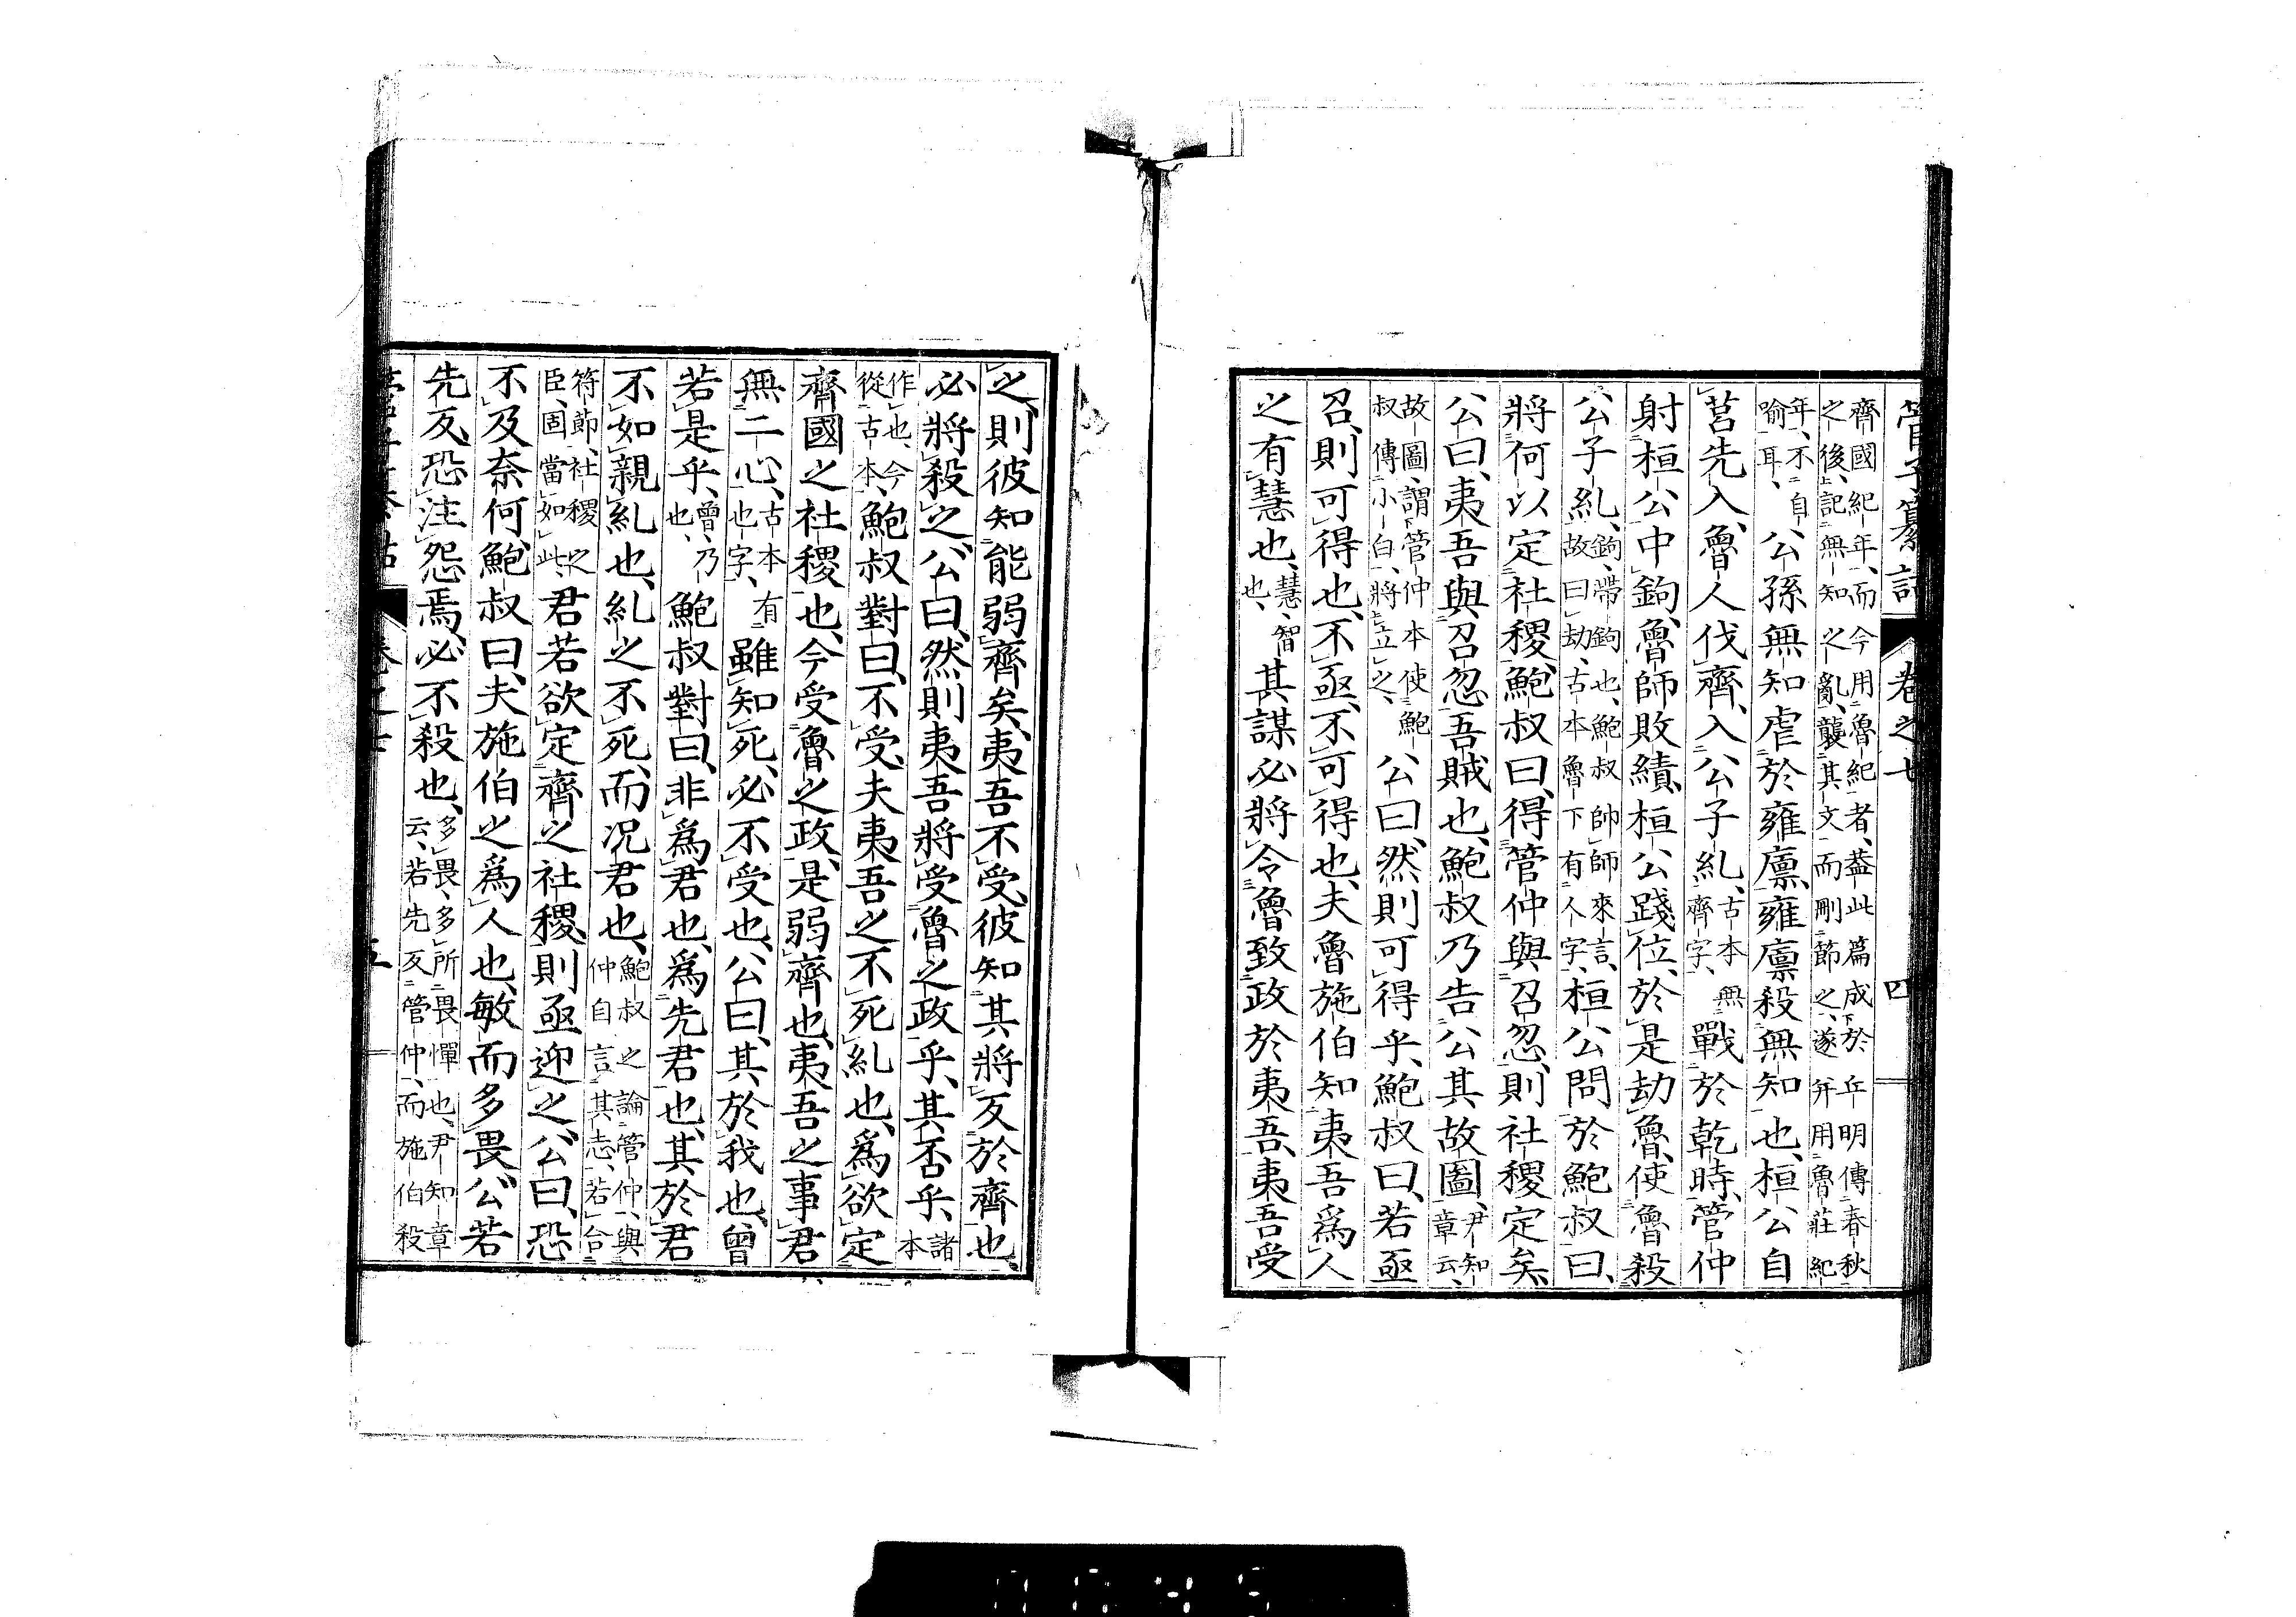 管子纂詁 卷之七 四
齊國紀年、而今用魯紀者、葢此篇成於丘明傳春秋
之後、記無知之亂、襲其文而刪節之、遂幷用魯莊紀
年、不自
喻耳、公孫無知虐於雍廩、雍廩殺無知也、桓公自
莒先入、魯人伐齊、入公子糺、古本無
齊字、戰於乾時、管仲
射桓公中鉤、魯師敗績、桓公踐位、於是劫魯、使魯殺
公子糺、鉤、帶鉤也、鮑叔帥師來言、
故曰劫、古本魯下有人字、桓公問於鮑叔曰、
將何以定社稷、鮑叔曰、得管仲與召忽、則社稷定矣、
公曰、夷吾與召忽、吾賊也、鮑叔乃告公其故圖、尹知
章云、
故圖、謂管仲本使鮑
叔傳小白、將立之、公曰、然則可得乎、鮑叔曰、若亟
召、則可得也、不亟、不可得也、夫魯施伯知夷吾爲人
之有慧也、慧、智
也、其謀必將令魯致政於夷吾、夷吾受
之、則彼知能弱齊矣、夷吾不受、彼知其將反於齊也、
必將殺之、公曰、然則夷吾將受魯之政乎、其否乎、諸
本
作也、今
從古本、鮑叔對曰、不受、夫夷吾之不死糺也、爲欲定
齊國之社稷也、今受魯之政、是弱齊也、夷吾之事君
無二心、古本有
也字、雖知死、必不受也、公曰、其於我也、曾
若是乎、曾、乃
也、鮑叔對曰、非爲君也、爲先君也、其於君
不如親糺也、糺之不死、而况君也、鮑叔之論管仲、與
仲自言其志、若合
符節、社稷之
臣、固當如此、君若欲定齊之社稷、則亟迎之、公曰、恐
不及奈何、鮑叔曰、夫施伯之爲人也、敏而多畏、公若
先反、恐注怨焉、必不殺也、多畏、多所畏憚也、尹知章
云、若先反管仲、而施伯殺
五